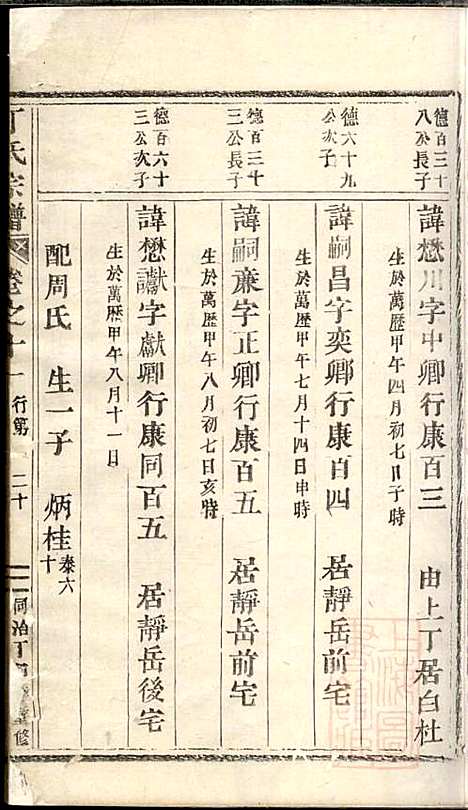 德百三十
八公長子
諱懋川字中卿行康百三 由上丁居白杜
生於萬歴甲午四月初七日子時
德六十九
公次子
諱嗣昌字奕卿行康百四 居靜岳前宅
生於萬歴甲午七月十四日申時
德百三十
三公長子
諱嗣廉字正卿行康百五 居靜岳前宅
生於萬歴甲午八月初七日亥時
德百六十
三公次子
諱懋讞字獻卿行康同百五 居靜岳後宅
生於萬歴甲午八月十一日
配周氏 生一子 炳桂泰六十
丁氏宗譜 卷之十一 行第 二十 同治丁 修